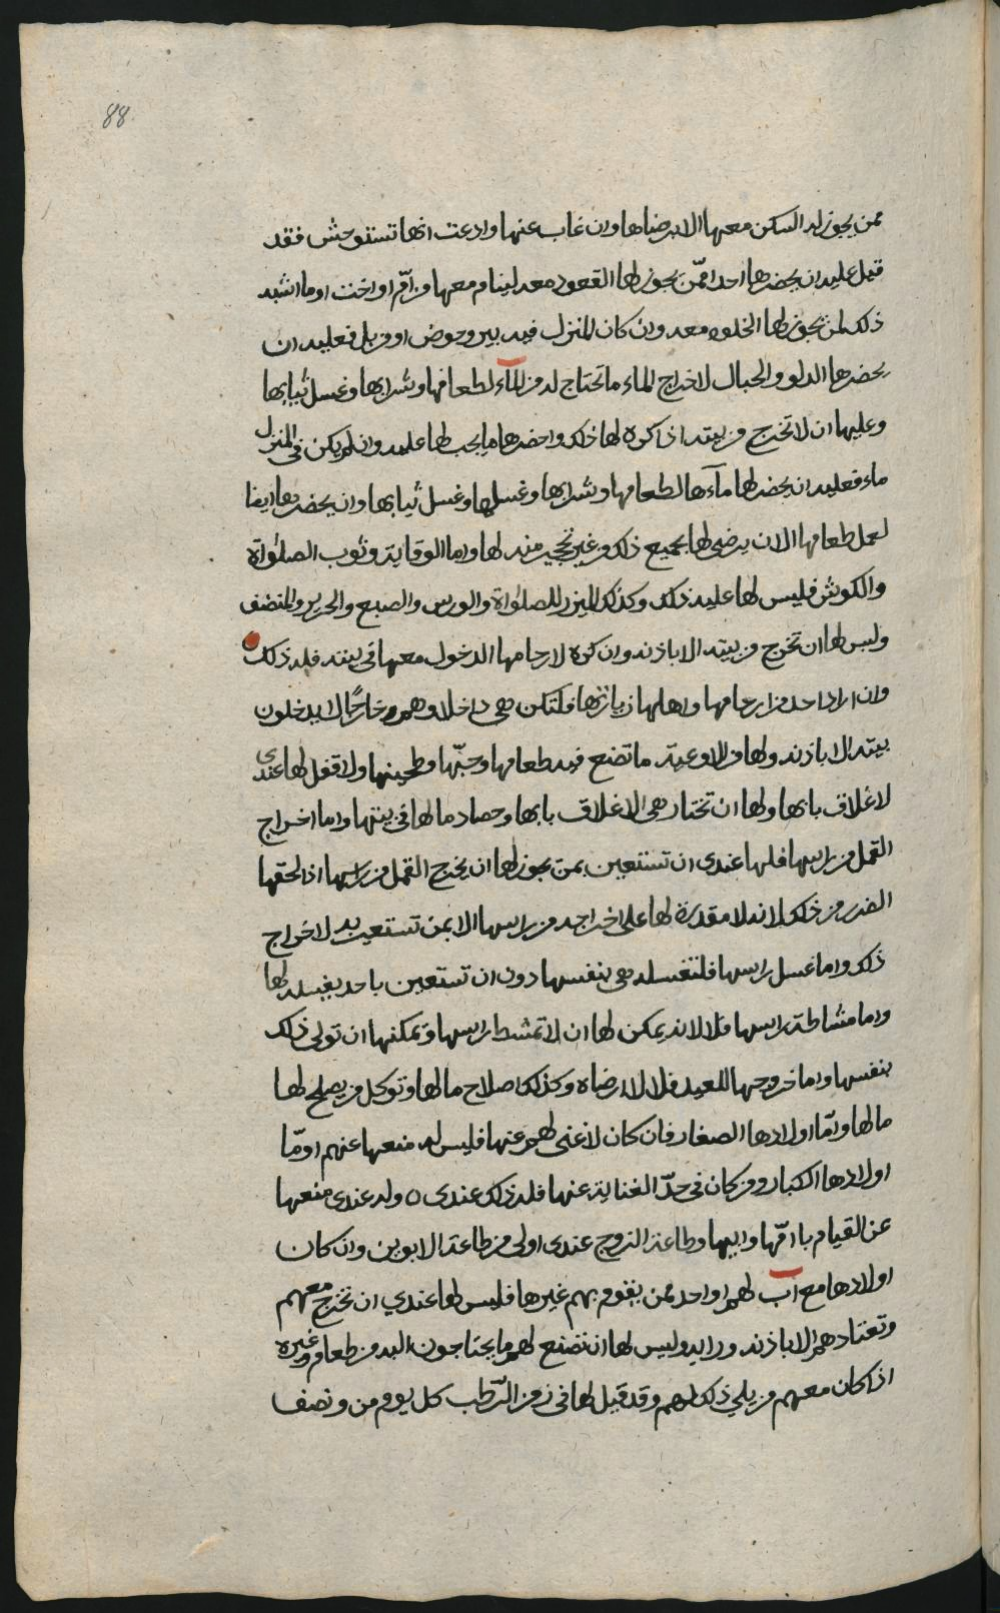 88
ممن يجوز له السكن معها الا برضاها وان غاب عنها وادعت انها تستوحش فقد
قيل عليه ان يحضرها احدا ممّن يجوز لها القعود معه لينام معها من امّ او اخت او ما اشبه
ذلك لمن يجوز لها الخلوه معه وان كان المنزل فيه بير وحوض او وزبل فعليه ان
يحضرها الدلو والحبال لاخراج الماء ما تحتاج له من المآء لطعامها وشرابها وغسل ثيابها
وعليها ان لا تخرج من بيته اذا كره لها ذلك واحضرها ما يجب لها عليه وان لم يكن في المنزل
ماء فعليه ان يحضر لها مآءها لطعامها وشرابها وغسلها وغسل ثيابها وان يحضر بها ايضا
لعمل طعامها الا ان يرضى لها بجميع ذلك من غير تجبر منه لها واما الوقاية وثوب الصلواة
والكوش فليس لها عليه ذلك وكذلك الميزر للصلواة والورس والصبع والحرير والمنصف
وليس لها ان تخرج من بيته الا باذنه وان كره لارحامها الدخول معها في بيته فله ذلك
وان اراد احد من ارحامها واهلها زيارتها فلتكن هي داخلا وهم من خارجًا لا يدخلون
بيته الا باذنه ولها من الاوعية ما تضع فيه طعامها وحبّها وطحينها ولا قفل لها عندى
لاغلاق بابها ولها ان تختار هي الاغلاق بابها وحصاد مالها في بيتها واما اخراج
القمل من راسها فلها عندى ان تستعين بمن يجوز لها ان يخرج القمل من راسها اذا لحقها
الضرر من ذلك لانه لا مقدرة لها على اخراجه من راسها الا بمن تستعين به لاخراج
ذلك واما غسل راسها فلتغسله هي بنفسها دون ان تستعين باحد يغسله لها
واما مشاطة راسها فلا لانه يمكن لها ان لا تمشط راسها ويمكنها ان تولى ذلك
بنفسها واما خروجها للعيد فلا الا برضاه وكذلك اصلاح مالها وتوكل من يصلح لها
مالها وامّا اولادها الصغار فان كان لا غنى لهم عنها فليس له منعها عنهم اومّا
اولادها الكبار ومن كان في حدّ الغناية عنها فله ذلك عندى ٥ وله عندى منعها
عن القيام بامّها وابيها وطاعة الزوج عندى اولى من طاعة الابوين وان كان
اولادها مع اب لهم او احد ممن يقوم بهم غيرها فليس لها عندي ان تخرج معهم
وتعتادهم الا باذنه ورايه وليس لها ان تصنع لهم ما يحتاجون اليه من طعام وغيره
اذا كان معهم من يلي ذلك لهم وقد قيل لها في زمن الرّطب كل يوم من ونصف